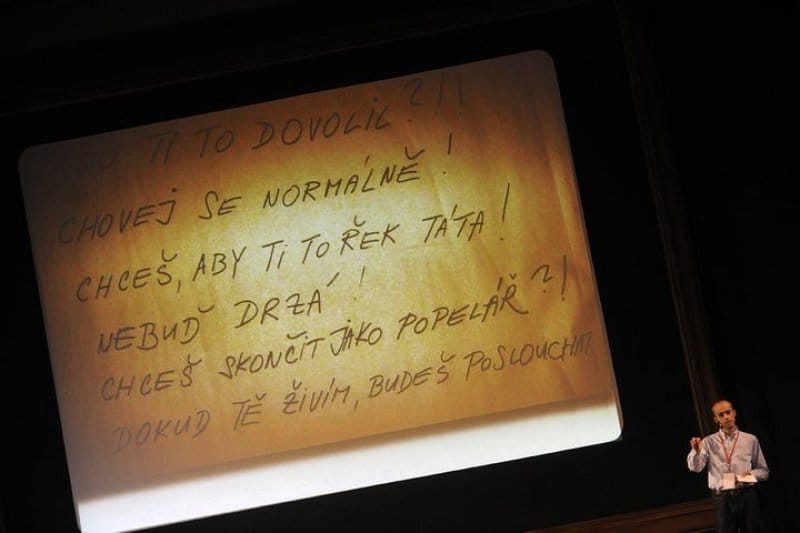 TI TO DOVOLIL?!!
CHOVEJ SE NORMÁLNĚ!
CHCEŠ, ABY TI TO ŘEK TÁTA!
NEBUĎ DRZÁ!
CHCEŠ SKONČIT JAKO POPELÁŘ?!
DOKUD TĚ ŽIVÍM, BUDEŠ POSLOUCHAT